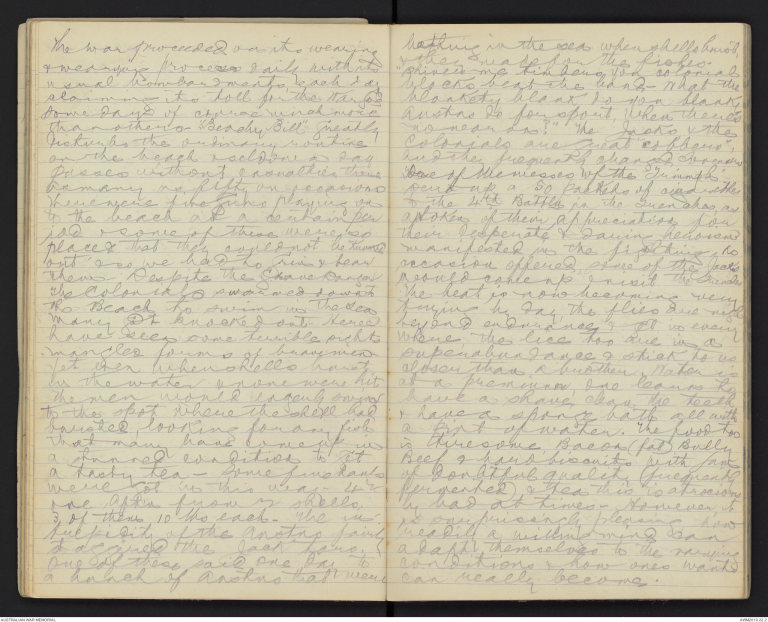 The war proceeded on its wearing
& wearying process daily with its
usual bombardments each day
claiming its toll for the War God
some days of course much more
than others. "Beachy Bill" greatly
disturbs the ordinary routine
on the beach & seldom a day
passes without casualties there
as many as fifty on occasions
There were five guns playing on
to the beach at a certain per
iod & some of these were so
placed that they could not be turned
out & so we had to grin & bear
them. Despite the grave danger
the Colonials swarmed down to
the Beach to swim in the Sea
many got knocked out. Here I
have seen some terrible sights
mangled forms of brave men
Yet even when shells burst
in the water & none were hit
the men would eagerly swim
to the spot where the shell had
bursted looking for any fish
that many have come up in
a stunned condition to get
a tasty tea – Some fine hauls
were got in this way
one often from 2 shells
3 of them 10 lbs each. The in
trepidity of the Austns fairly
staggered the Jack Tars,
one of these said one day to
a bunch of Austns that were
bathing in the sea when shells burst
& they made for the fishes.
"Shiver me timbers you colonial
blocks beat the band – What the
blankety blank do you blanky
Austns do for sport, when there's
no war on?" The Jacks & the
Colonials are great "cobbers"
and they frequently changed
One of the messes of the "Triumph"
sent up a 50 packets of cigarettes
to the 4th Battn in the trenches, as
a token of their appreciation for
their desperate & daring heroism
manifested in the fighting. As
occasion offered some of the Jacks
would come up & visit the trenches
The heat is now becoming very
trying by day the flies are nigh
beyond endurance & it is every
where. The lice too are in a
superabundance & stick to us
closer than a brother. Water is
at a premium. One learns to
have a shave, clean the teeth
& have a sponge bath all with
a pint of water. The food too
is tiresome Bacon (fat) Bully
Beef & hard biscuits with jam
of doubtful quality (frequently
fermented) & tea this is atrociously
bad at times – However, it
is surprisingly pleasing how
readily a willing mind can
adapt themselves to the varying
conditions & how ones wants
can really become.
AUSTRALIAN WAR MEMORIAL